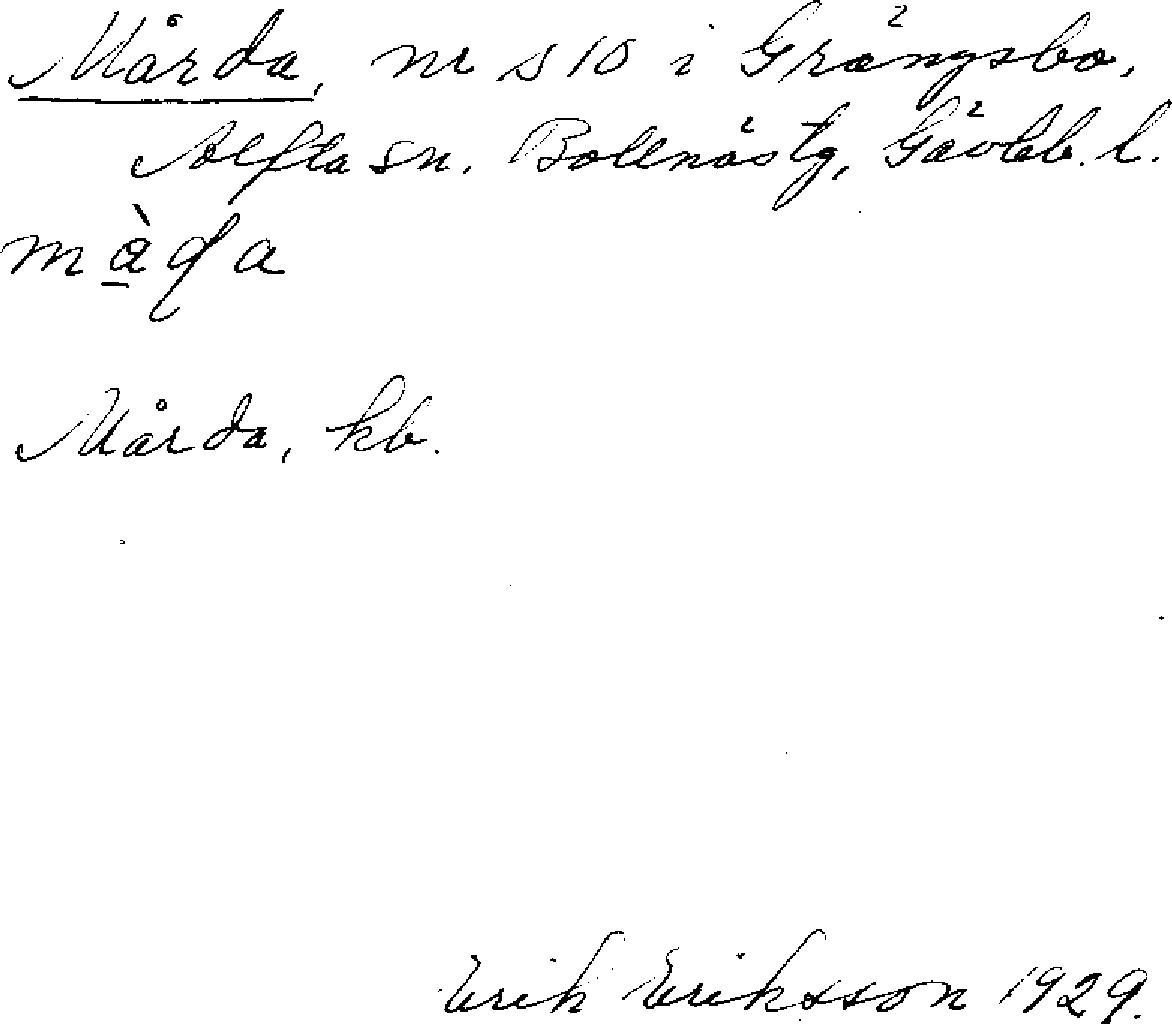 Mårda, nr s 10 i Grängsbo,
Alfta sn. Bollnäs tg, Gävleb. l.
Mårda, kb.
Erik Eriksson 1929.